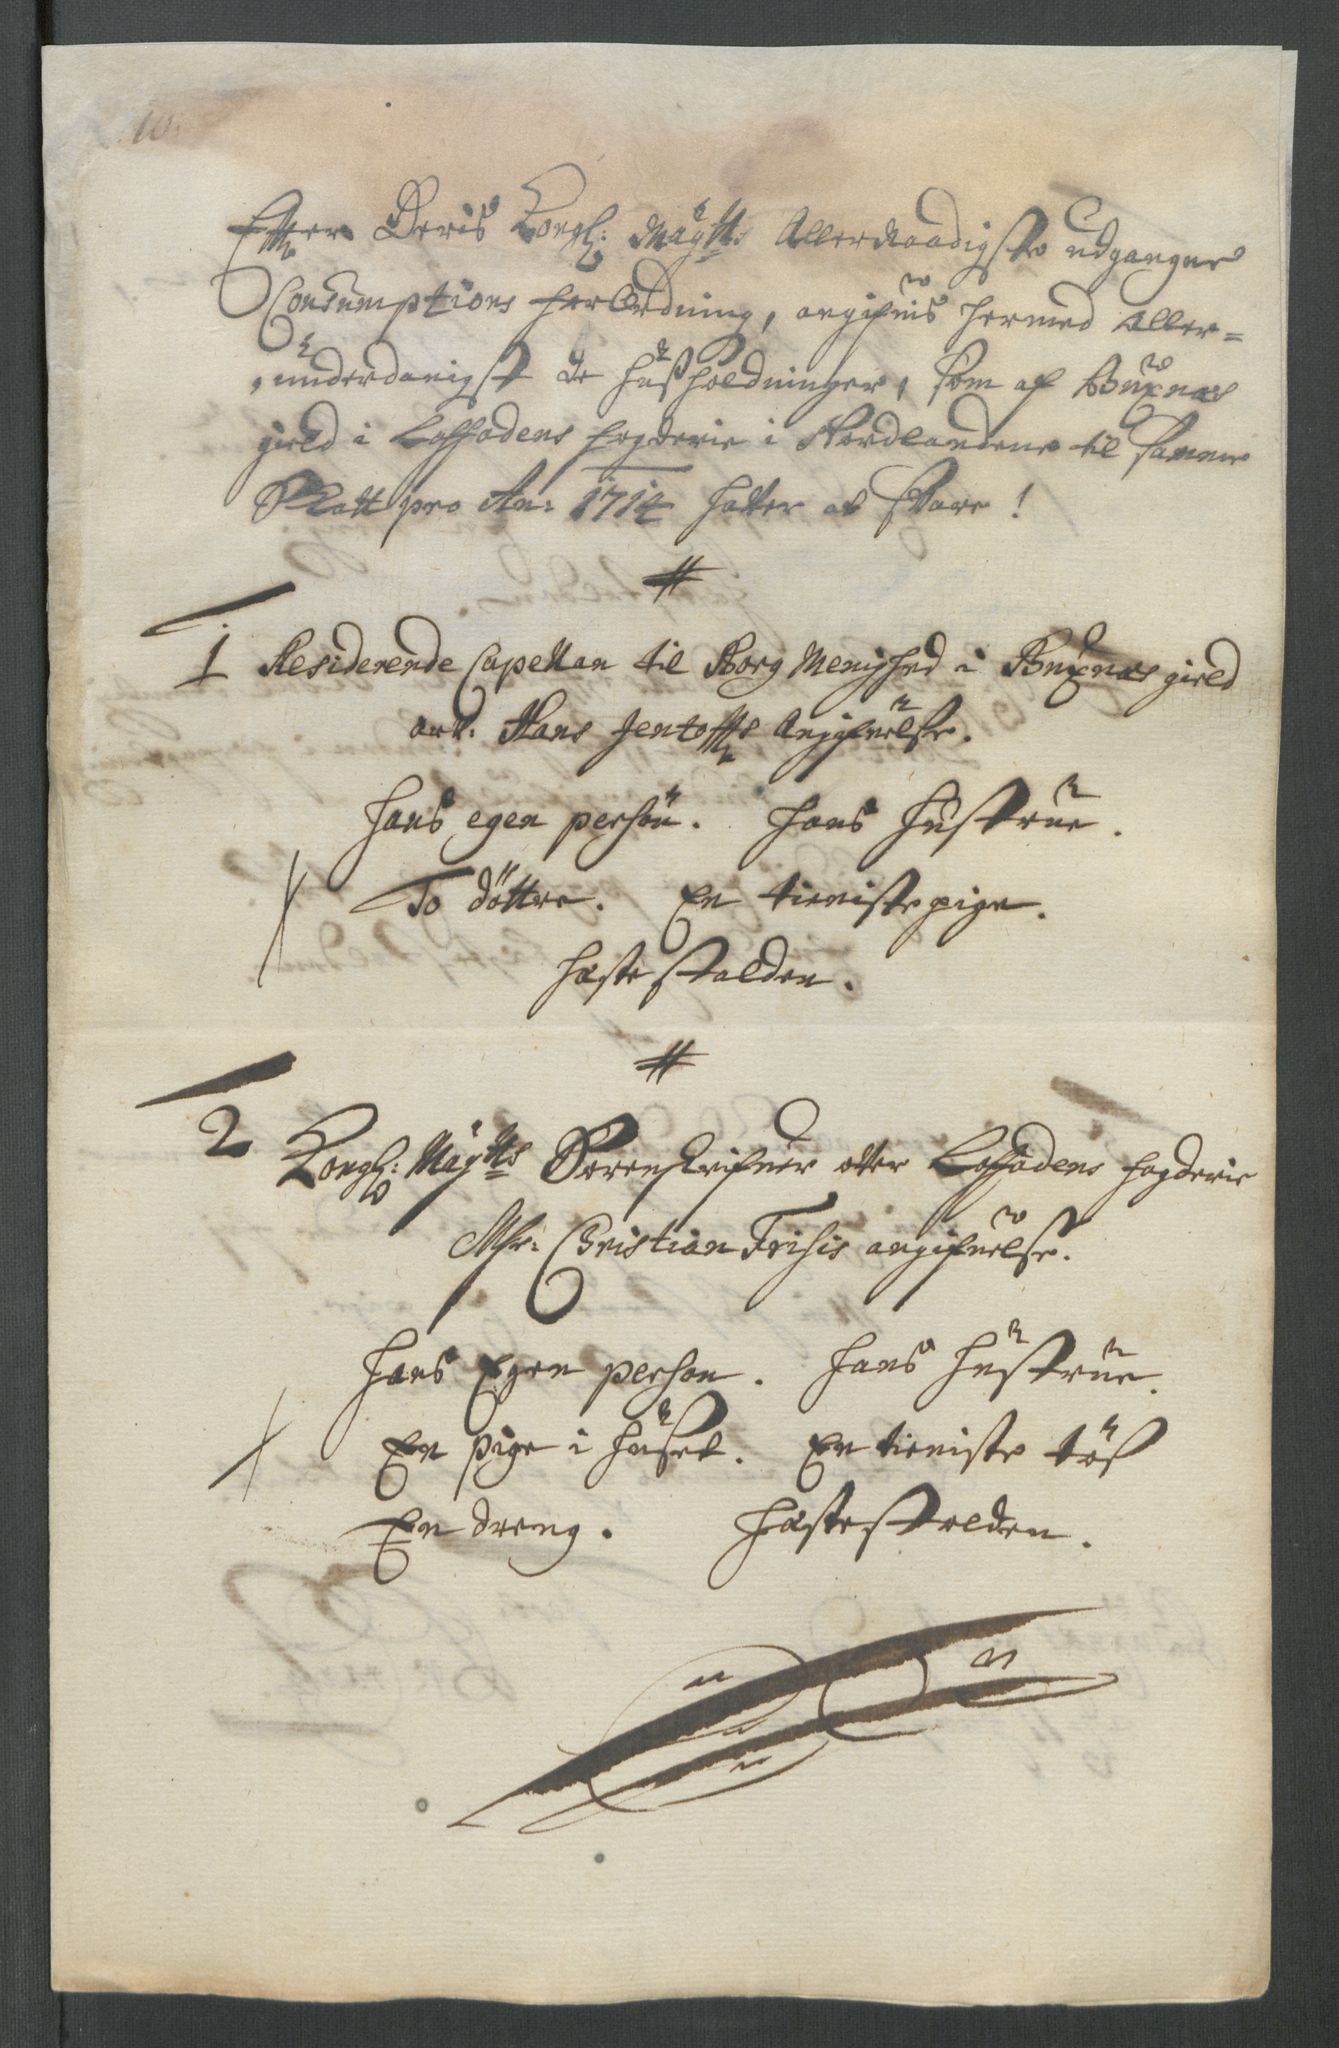 10.
Effter Deris Kongl: Maÿtts Allernaadigste udgangne
Consumptions forordning, angifuis hermed Aller=
underdanigst de huusholdninger, som af Buxnæs
gield i Loffodens fogderie i Nordlandene til samme
Skatt pro An: 1714 hafver at svare!
#
1 Residerende Capellan til Borg Menighed i Buxnæs gield
 Hans Jentoffts Angifuelse.
hans egen persohn. hans hustrue.
To döttre. En tieniste pige.
hæste stalden.
#
2 Kongl: Maÿtts Sorenskrifuer ofver Loffodens fogderie
Mhr: Christian Frisis angifuelse.
hans Egen person. hans hustrue.
En pige i huset. En tieniste tös
En dreng. hæste stalden.